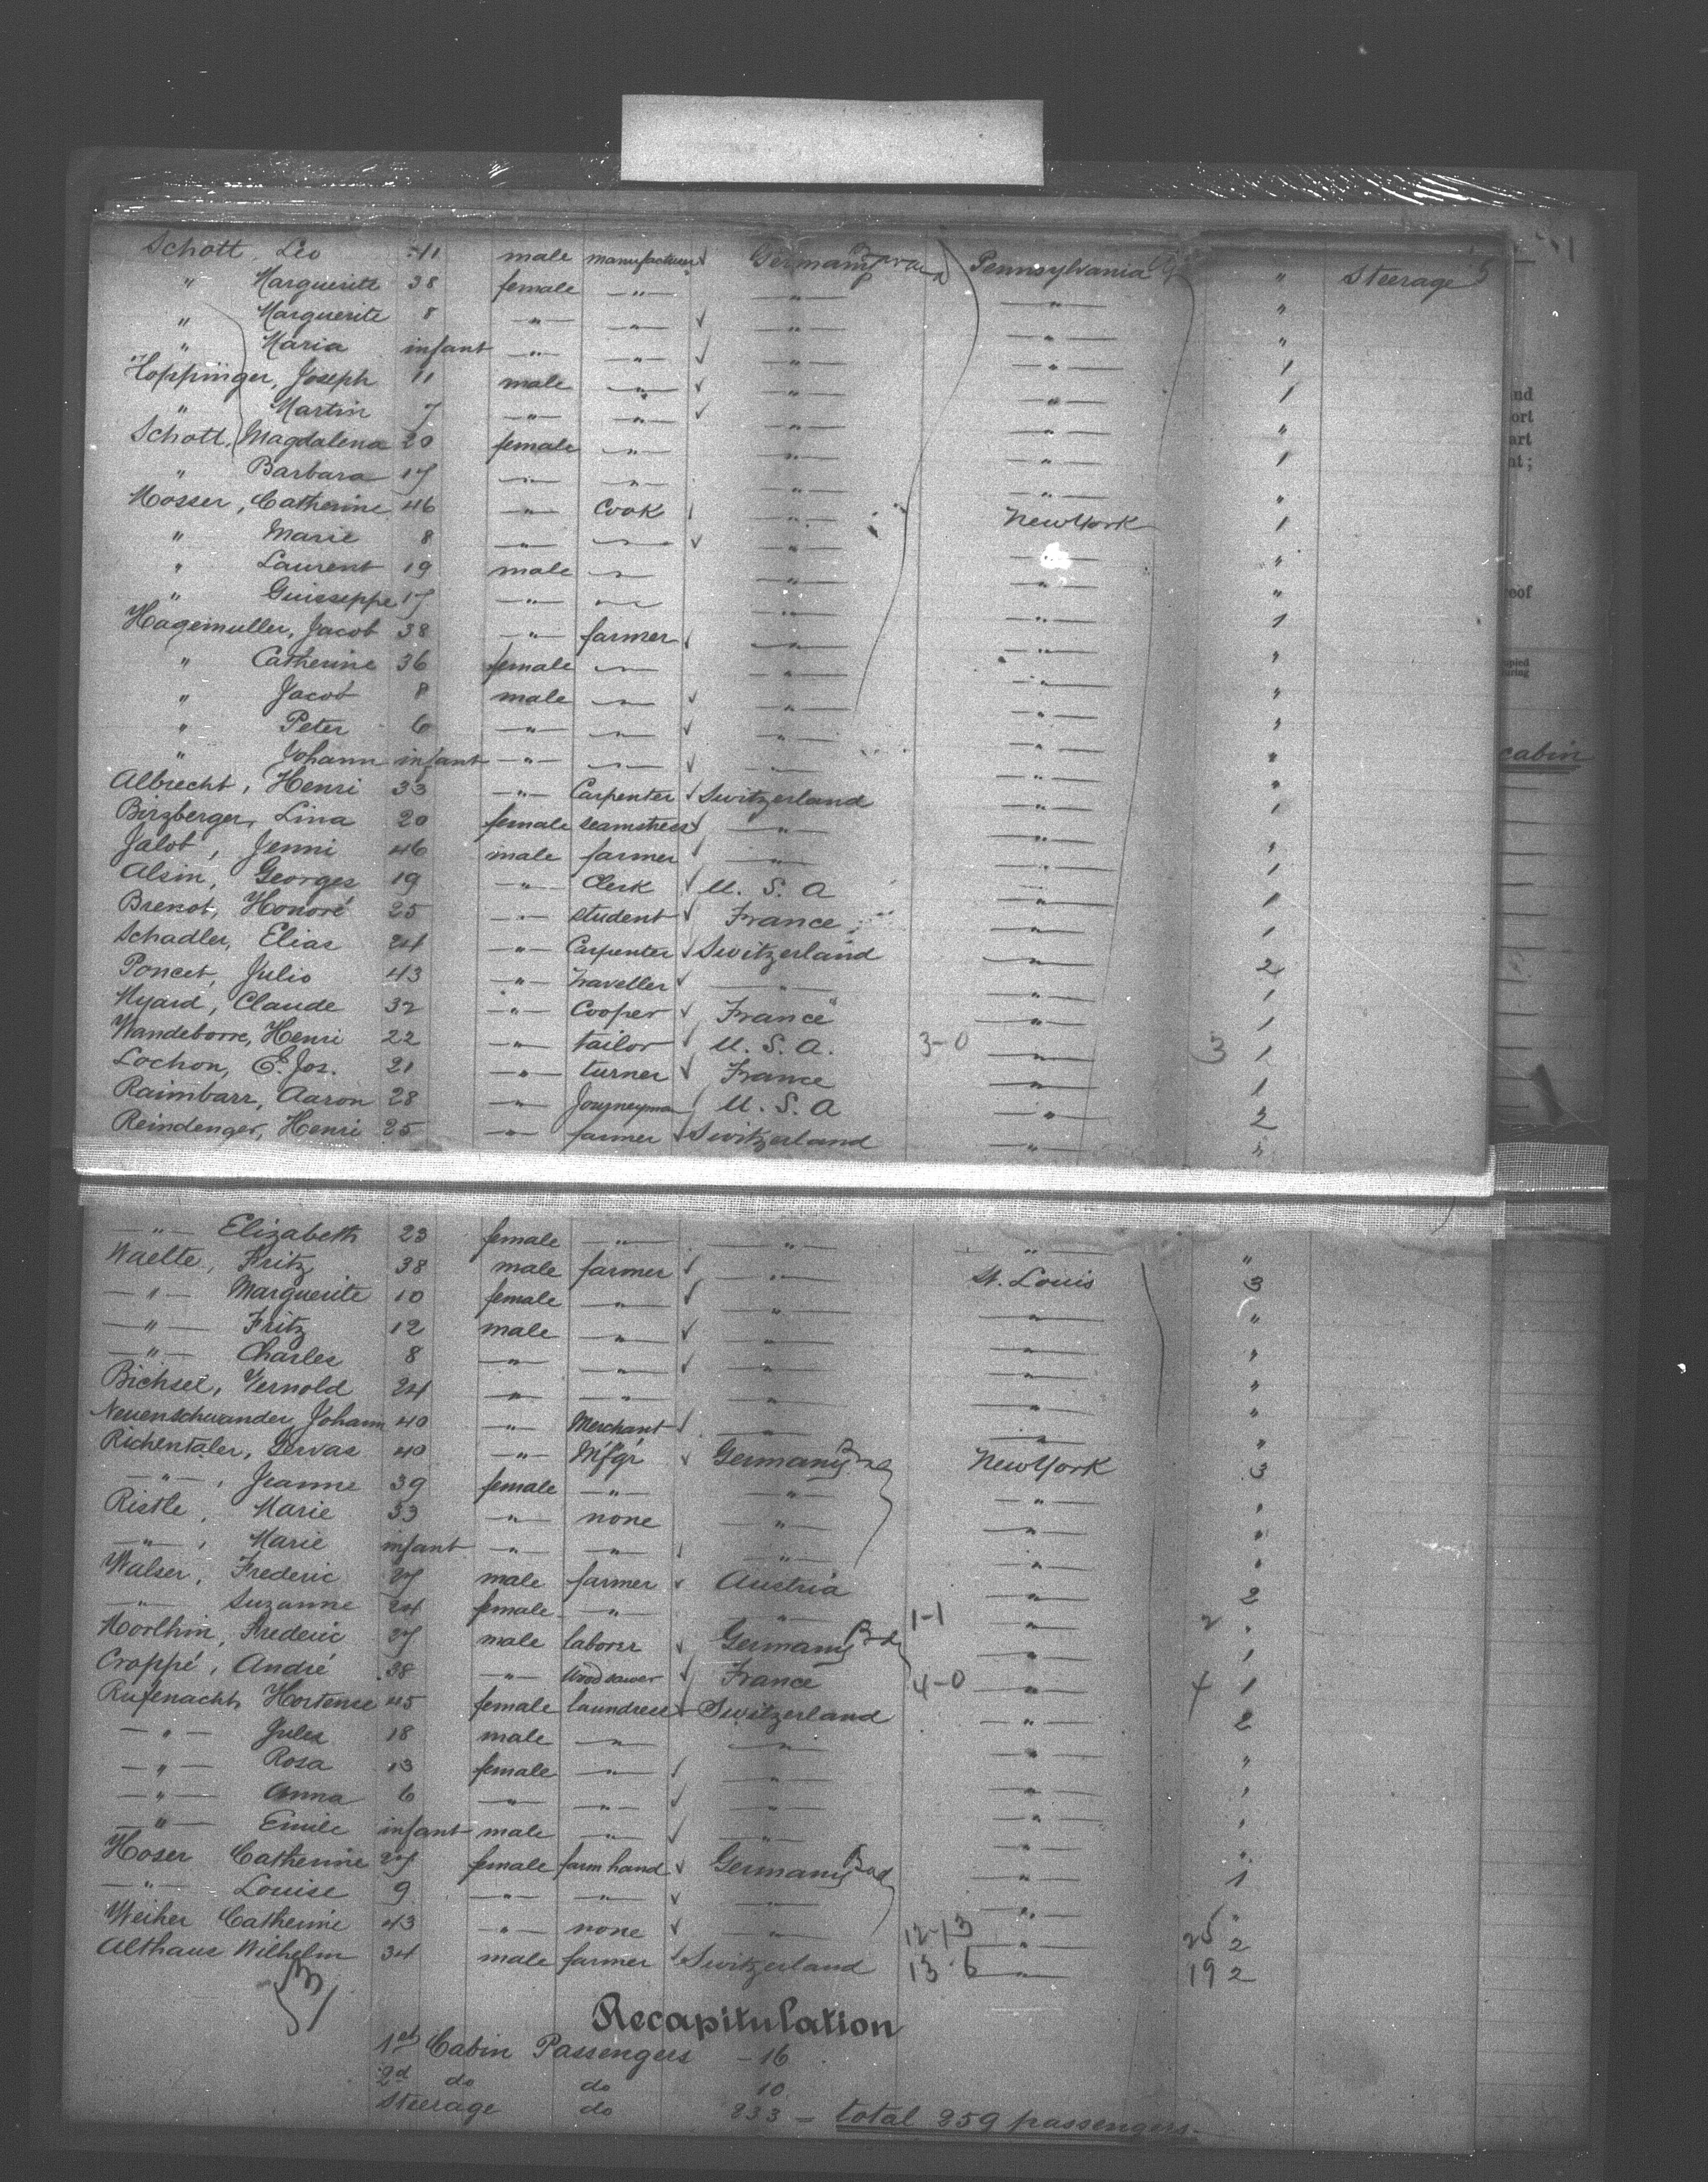 Schott, Leo 41 male manufacturer ✓ Germany Pennsylvania " Steerage 5
" Marguerite 38 female —"— —"— —"— "
" Marguerite 8 —"— —"— ✓ —"— —"— "
" Maria infant —"— —"— ✓ —"— —"— 1
Hoppinger, Joseph 11 male —"— ✓ —"— —"— 1
" Martin 7 —"— —"— ✓ —"— —"— "
Schott, Magdalena 20 female —"— —"— —"— 1
" Barbara 17 —"— —"— —"— —"— "
Mosser, Catherine 46 —"— Cook —"— New York 1
" Marie 8 —"— —"— ✓ —"— —"— "
" Laurent 19 male —"— —"— —"— "
" Guisseppe 17 —"— —"— —"— —"— 1
Hagemuller, Jacob 38 —"— farmer —"— —"— "
" Catherine 36 female —"— —"— —"— "
" Jacob 8 male —"— ✓ —"— —"— "
" Peter 6 —"— —"— ✓ —"— —"— "
" Johann infant —"— —"— ✓ —"— —"— "
Albrecht, Henri 33 —"— Carpenter ✓ Switzerland —"— 1
Birzberger, Lina 20 female seamstress ✓ —"— —"— "
Jalob, Jenni 46 male farmer ✓ —"— —"— 1
Alsin, Georges 19 —"— Clerk ✓ U. S. A —"— 1
Brenot, Honoré 25 —"— student ✓ France —"— 1
Schadler, Elias 24 —"— Carpenter ✓ Switzerland —"— 2
Poncet, Julio 43 —"— traveller ✓ —"— —"— 1
Myard, Claude 32 —"— Cooper ✓ France —"— 1
Wandeborre, Henri 22 —"— tailor ✓ U. S. A. 3-0 —"— 3 1
Lochon, E. Jos. 21 —"— turner ✓ France —"— 1
Raimbarr, Aaron 28 —"— Journeyman ✓ U. S. A —"— 2
Reindenger, Henri 25 —"— farmer ✓ Switzerland —"— "
—"— Elizabeth 23 female —"— —"— —"— "
Waelte, Fritz 38 male farmer ✓ —"— St. Louis 3
—"— Marguerite 10 female —"— ✓ —"— —"— "
—"— Fritz 12 male —"— ✓ —"— —"— "
—"— Charles 8 —"— —"— ✓ —"— —"— "
Bichsel, Vernold 24 —"— —"— —"— —"— "
Neuenschwander, Johann 40 —"— Merchant ✓ —"— —"— "
Richentaler, Gervas 40 —"— M'f'g'r ✓ Germany New York 3
—"—, Jeanne 39 female —"— —"— —"— "
Ristle, Marie 53 —"— none —"— —"— "
—"—, Marie infant —"— —"— ✓ —"— —"— "
Walser, Frederic 27 male farmer ✓ Austria —"— 2
—"— Suzanne 24 female —"— —"— 1-1 —"— 2 "
Morlhin, Frederic 27 male laborer ✓ Germany Bad —"— 1
Croppé, André 38 —"— Wood sawer ✓ France 4-0 —"— 4 1
Rufenacht, Hortense 45 female laundress ✓ Switzerland —"— 2
—"— Jules 18 male —"— —"— —"— "
—"— Rosa 13 female —"— ✓ —"— —"— "
—"— Anna 6 —"— —"— ✓ —"— —"— "
—"— Emile infant male —"— ✓ —"— —"— "
Hoser Catherine 27 female farm hand ✓ Germany Bad —"— 1
—"— Louise 9 —"— —"— ✓ —"— —"— "
Weiher Catherine 43 —"— none ✓ —"— 12-13 —"— 25 2
Althaus Wilhelm 34 male farmer ✓ Switzerland 13-6 —"— 19 2
Recapitulation
1st Cabin Passengers — 16
2d do do 10
Steerage do 233 = total 259 passengers.
nd
ort
art
nt;
reof
upied
uring
cabin